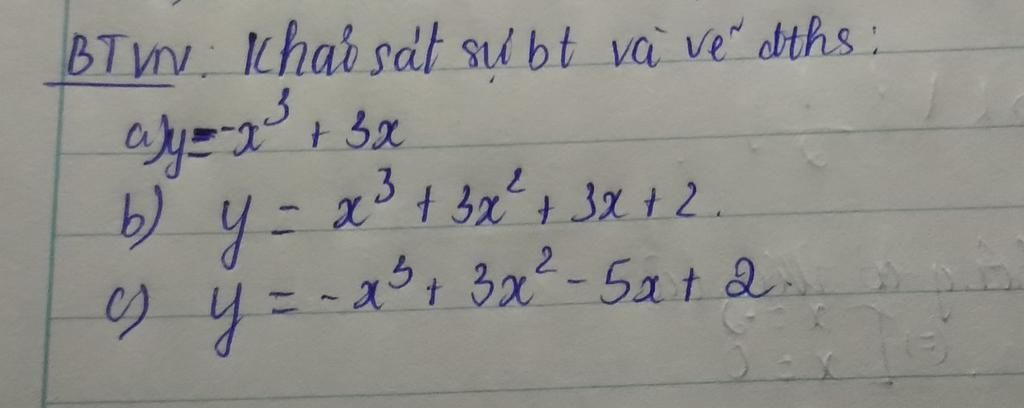 BTVN: Khảo sát sự bt và vẽ đths:
a) y = -x³ + 3x
b) y = x³ + 3x² + 3x + 2.
c) y = -x³ + 3x² - 5x + 2.